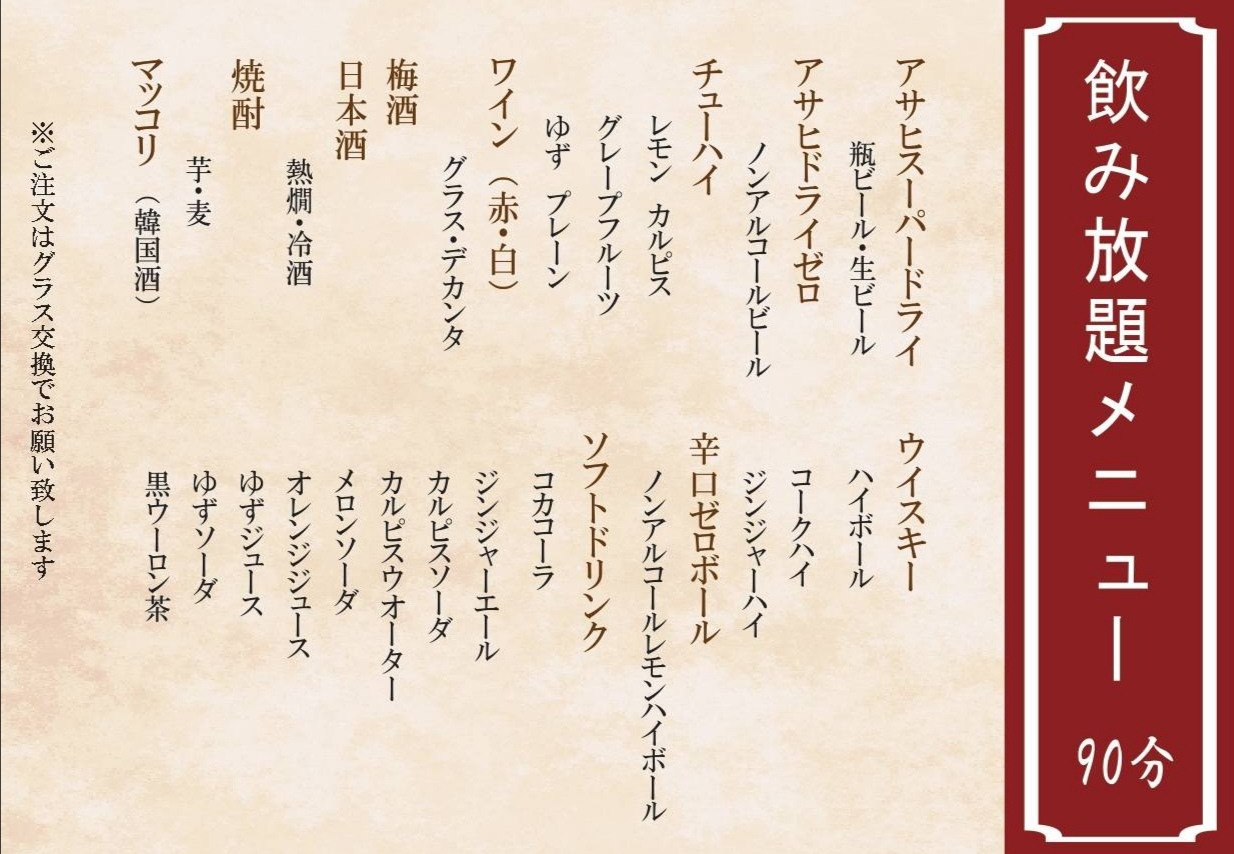 飲み放題メニュー 90分
アサヒスーパードライ
瓶ビール・生ビール
アサヒドライゼロ
ノンアルコールビール
チューハイ
レモン カルピス
グレープフルーツ
ゆず プレーン
ワイン（赤・白）
グラス・デカンタ
梅酒
日本酒
熱燗・冷酒
焼酎
芋・麦
マッコリ（韓国酒）
ウイスキー
ハイボール
コークハイ
ジンジャーハイ
辛口ゼロボール
ノンアルコールレモンハイボール
ソフトドリンク
コカコーラ
ジンジャーエール
カルピスソーダ
カルピスウオーター
メロンソーダ
オレンジジュース
ゆずジュース
ゆずソーダ
黒ウーロン茶
※ご注文はグラス交換でお願い致します